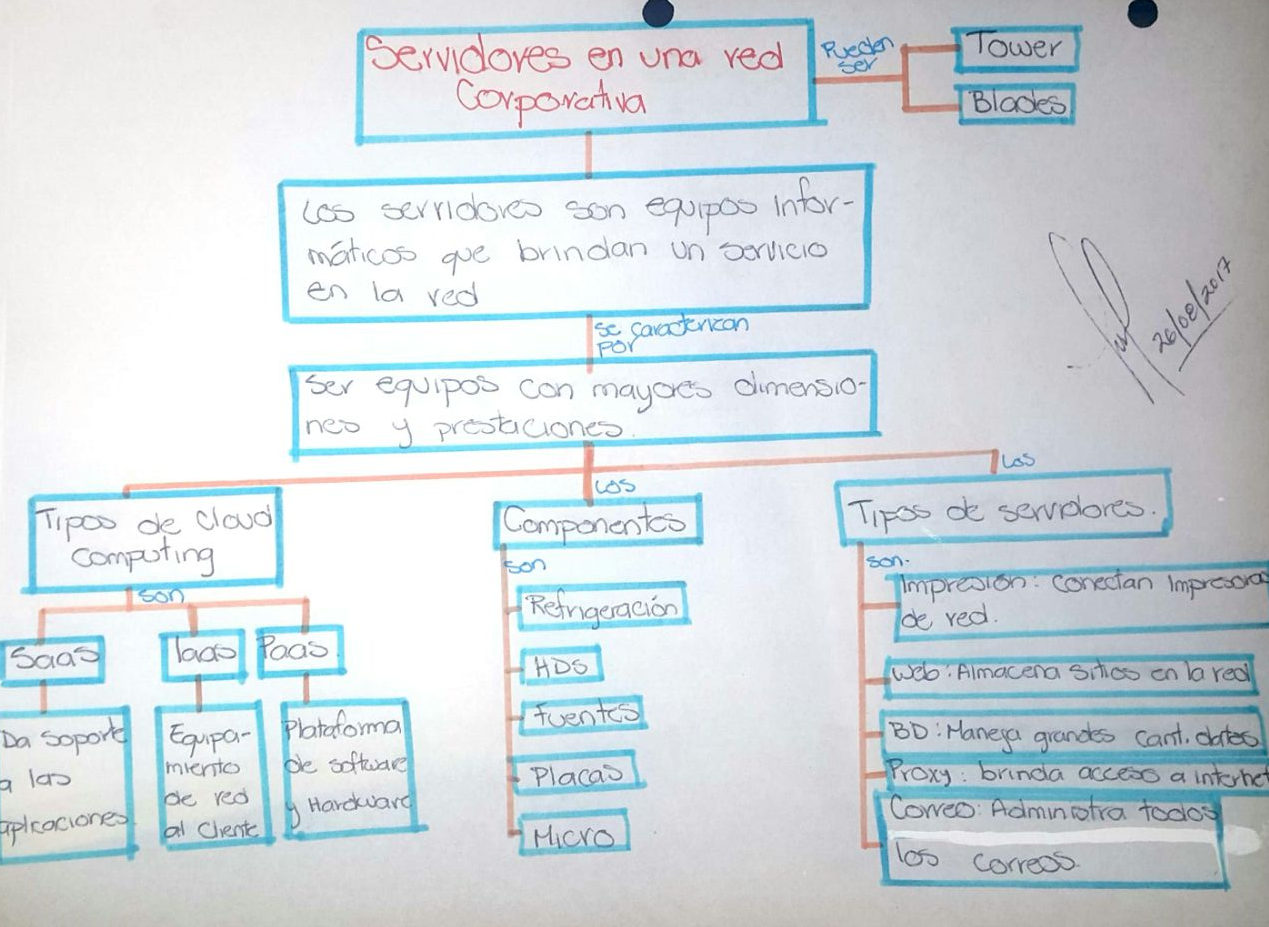 Servidores en una red
Corporativa
Pueden
ser
Tower
Blades
Los servidores son equipos infor-
máticos que brindan un servicio
en la red
se caracterizan
por
Ser equipos con mayores dimensio-
nes y prestaciones.
26/08/2017
Los
Los
Tipos de Cloud
Computing
son
Saas
Iaas
Paas.
Da soporte
a las
aplicaciones
Equipa-
miento
de red
al Cliente
Plataforma
de software
y Hardware
Componentes
son
Refrigeración
HDS
Fuentes
Placas
Micro
Tipos de servidores.
son.
Impresión: Conectan Impresoras
de red.
Web: Almacena Sitios en la red
BD: Maneja grandes cant. datos
Proxy: brinda acceso a internet
Correo: Administra todos
los correos